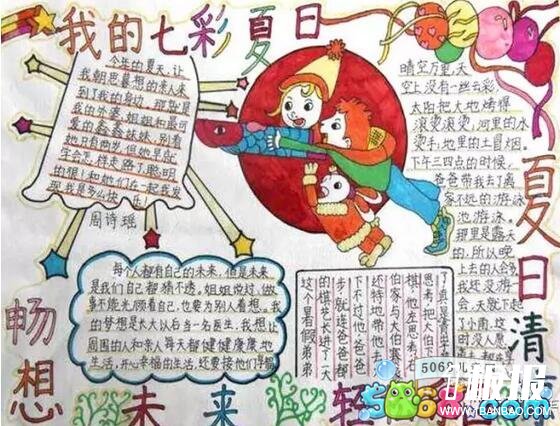 我的七彩夏日
今年的夏天,让
我朝思暮想的亲人来
到了我的身边,那就是
我的外婆、姐姐和最可
爱的淼淼妹妹,别看
她只有两岁,但她早就
学会怎样走路了,聪明
的狠!和她们在一起我发
现我是多么快乐!
周诗瑶
晴空万里,天
空上没有一丝云彩,
太阳把大地烤得
滚烫滚烫,河里的水
烫手,地里的土冒烟。
下午三四点的时候,
爸爸带我去了离
家不远的游泳
池游泳。
那里是露天
的,所以晚
上去的人会多
我还没游
一会,天就下起
了小雨,这
时没人愿
夏日清
畅想未来
每个人都有自己的未来,但是未来
是我们自己都猜不透,姐姐说过,做
事不能光顾着自己,也要为别人着想。我
的梦想是长大以后当一名医生,我想让
周围的人和亲人每天都健健康康地
生活,开心幸福的生活,还要接他们
思考,把大伯
棋,他左思考
伯家与大伯赛
还特地带他去大
下不过他,爸爸
步,就连爸爸都
的棋艺长进了一大
这个暑假弟弟
轻
5068
5068.com
板报
WWW.BANBAO.COM